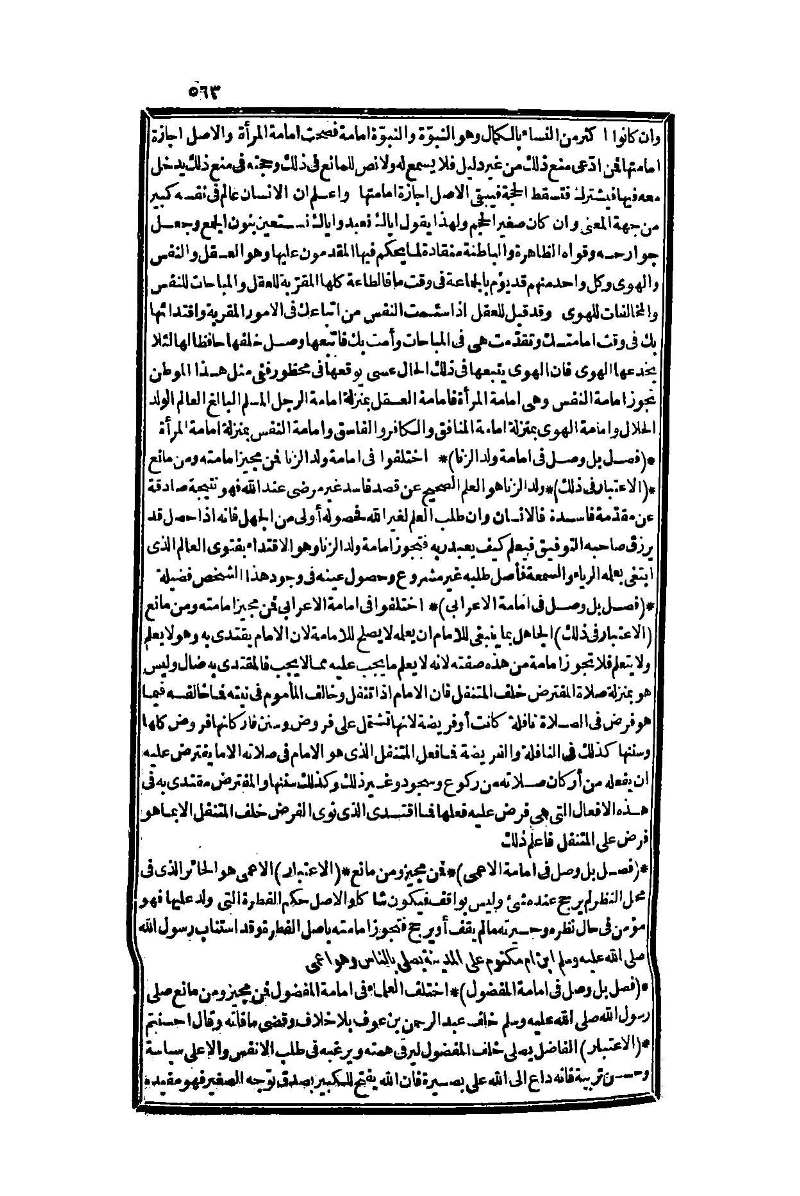 ٥٦٣
وان كانوا اكثر من النساء بالكمال وهو النبوّة والنبوّة امامة فصحت امامة المرأة والاصل اجازة
امامتها فمن ادّعى منع ذلك من غير دليل فلا يسمع له ولا نص للمانع فى ذلك وحجته فى منع ذلك يدخل
معه فيها فيشترك فتسقط الحجة فيبقى الاصل اجازة امامتها واعلم ان الانسان عالم فى نفسه كبير
من جهة المعنى وان كان صغير الحجم ولهذا يقول اياك نعبد واياك نستعين بنون الجمع وجعل
جوارحه وقواه الظاهرة والباطنة منقادة لما يحكم فيها المقدمون عليها وهو العقل والنفس
والهوى وكل واحد منهم قد يؤم بالجماعة فى وقت ما فالطاعة كلها المقرّبة للعقل والمباحات للنفس
والمخالفات للهوى وقد قيل للعقل اذا سئمت النفس من اتباعك فى الامور المقربة واقتدائها
بك فى وقت امامتك وتقدّمت هى فى المباحات وأمت بك فاتبعها وصل خلفها حافظا لها لئلا
يخدعها الهوى فان الهوى يتبعها فى ذلك الحال عسى يوقعها فى محظور ففى مثل هذا الموطن
تجوز امامة النفس وهى امامة المرأة فامامة العقل بمنزلة امامة الرجل المسلم البالغ العالم الولد
الحلال وامامة الهوى بمنزلة امامة المنافق والكافر والفاسق وامامة النفس بمنزلة امامة المرأة
*(فصل بل وصل فى امامة ولد الزنا)* اختلفوا فى امامة ولد الزنا فمن مجيز امامته ومن مانع
*(الاعتبار فى ذلك)* ولد الزنا هو العلم الصحيح عن قصد فاسد غير مرضى عند الله فهو نتيجة صادقة
عن مقدّمة فاسدة فالانسان وان طلب العلم لغير الله فحصوله أولى من الجهل فانه اذا حصل قد
يرزق صاحبه التوفيق فيعلم كيف يعبد ربه فتجوز امامة ولد الزنا وهو الاقتداء بفتوى العالم الذى
ابتغى بعلمه الرياء والسمعة فأصل طلبه غير مشروع وحصول عينه فى وجود هذا الشخص فضيلة
*(فصل بل وصل فى امامة الاعرابى)* اختلفوا فى امامة الاعرابى فمن مجيز امامته ومن مانع
(الاعتبار فى ذلك) الجاهل بما ينبغى للامام ان يعلمه لا يصلح للامامة لان الامام يقتدى به وهو لا يعلم
ولا يتعلم فلا تجوز امامة من هذه صفته لانه لا يعلم ما يجب عليه مما لا يجب فالمقتدى به ضال وليس
هو بمنزلة صلاة المفترض خلف المتنفل فان الامام اذا تنفل وخالف المأموم فى نيته فما خالفه فيما
هو فرض فى الصلاة نافلة كانت أو فريضة لانها تشتمل على فروض وسنن فاركانها فروض كلها
وسننها كذلك فى النافلة والفريضة فما فعل المتنفل الذى هو الامام فى صلاته الا ما يفترض عليه
ان يفعله من أركان صلاته من ركوع وسجود وغير ذلك وكذلك سننها والمفترض مقتدى به فى
هذه الافعال التى هى فرض عليه فعلها فما اقتدى الذى نوى الفرض خلف المتنفل الا بما هو
فرض على المتنفل فاعلم ذلك
*(فصل بل وصل فى امامة الاعمى)* فمن مجيز ومن مانع *(الاعتبار) الاعمى هو الحائر الذى فى
محل النظر لم يرجح عنده شئ وليس بواقف فيكون شاكا والاصل حكم الفطرة التى ولد عليها فهو
مؤمن فى حال نظره وحيرته مالم يقف أو يرجح فتجوز امامته باصل الفطرة وقد استناب رسول الله
صلى الله عليه وسلم ابن ام مكتوم على المدينة يصلى بالناس وهو اعمى
*(فصل بل وصل فى امامة المفضول)* اختلف العلماء فى امامة المفضول فمن مجيز ومن مانع صلى
رسول الله صلى الله عليه وسلم خلف عبد الرحمن بن عوف بلا خلاف وقضى ما فاته وقال احسنتم
*(الاعتبار) الفاضل يصلى خلف المفضول ليرقى همته ويرغبه فى طلب الانفس والاعلى سياسة
وحسن تربية فانه داع الى الله على بصيرة فان الله يفتح للكبير بصدق توجه الصغير فهو مقيده